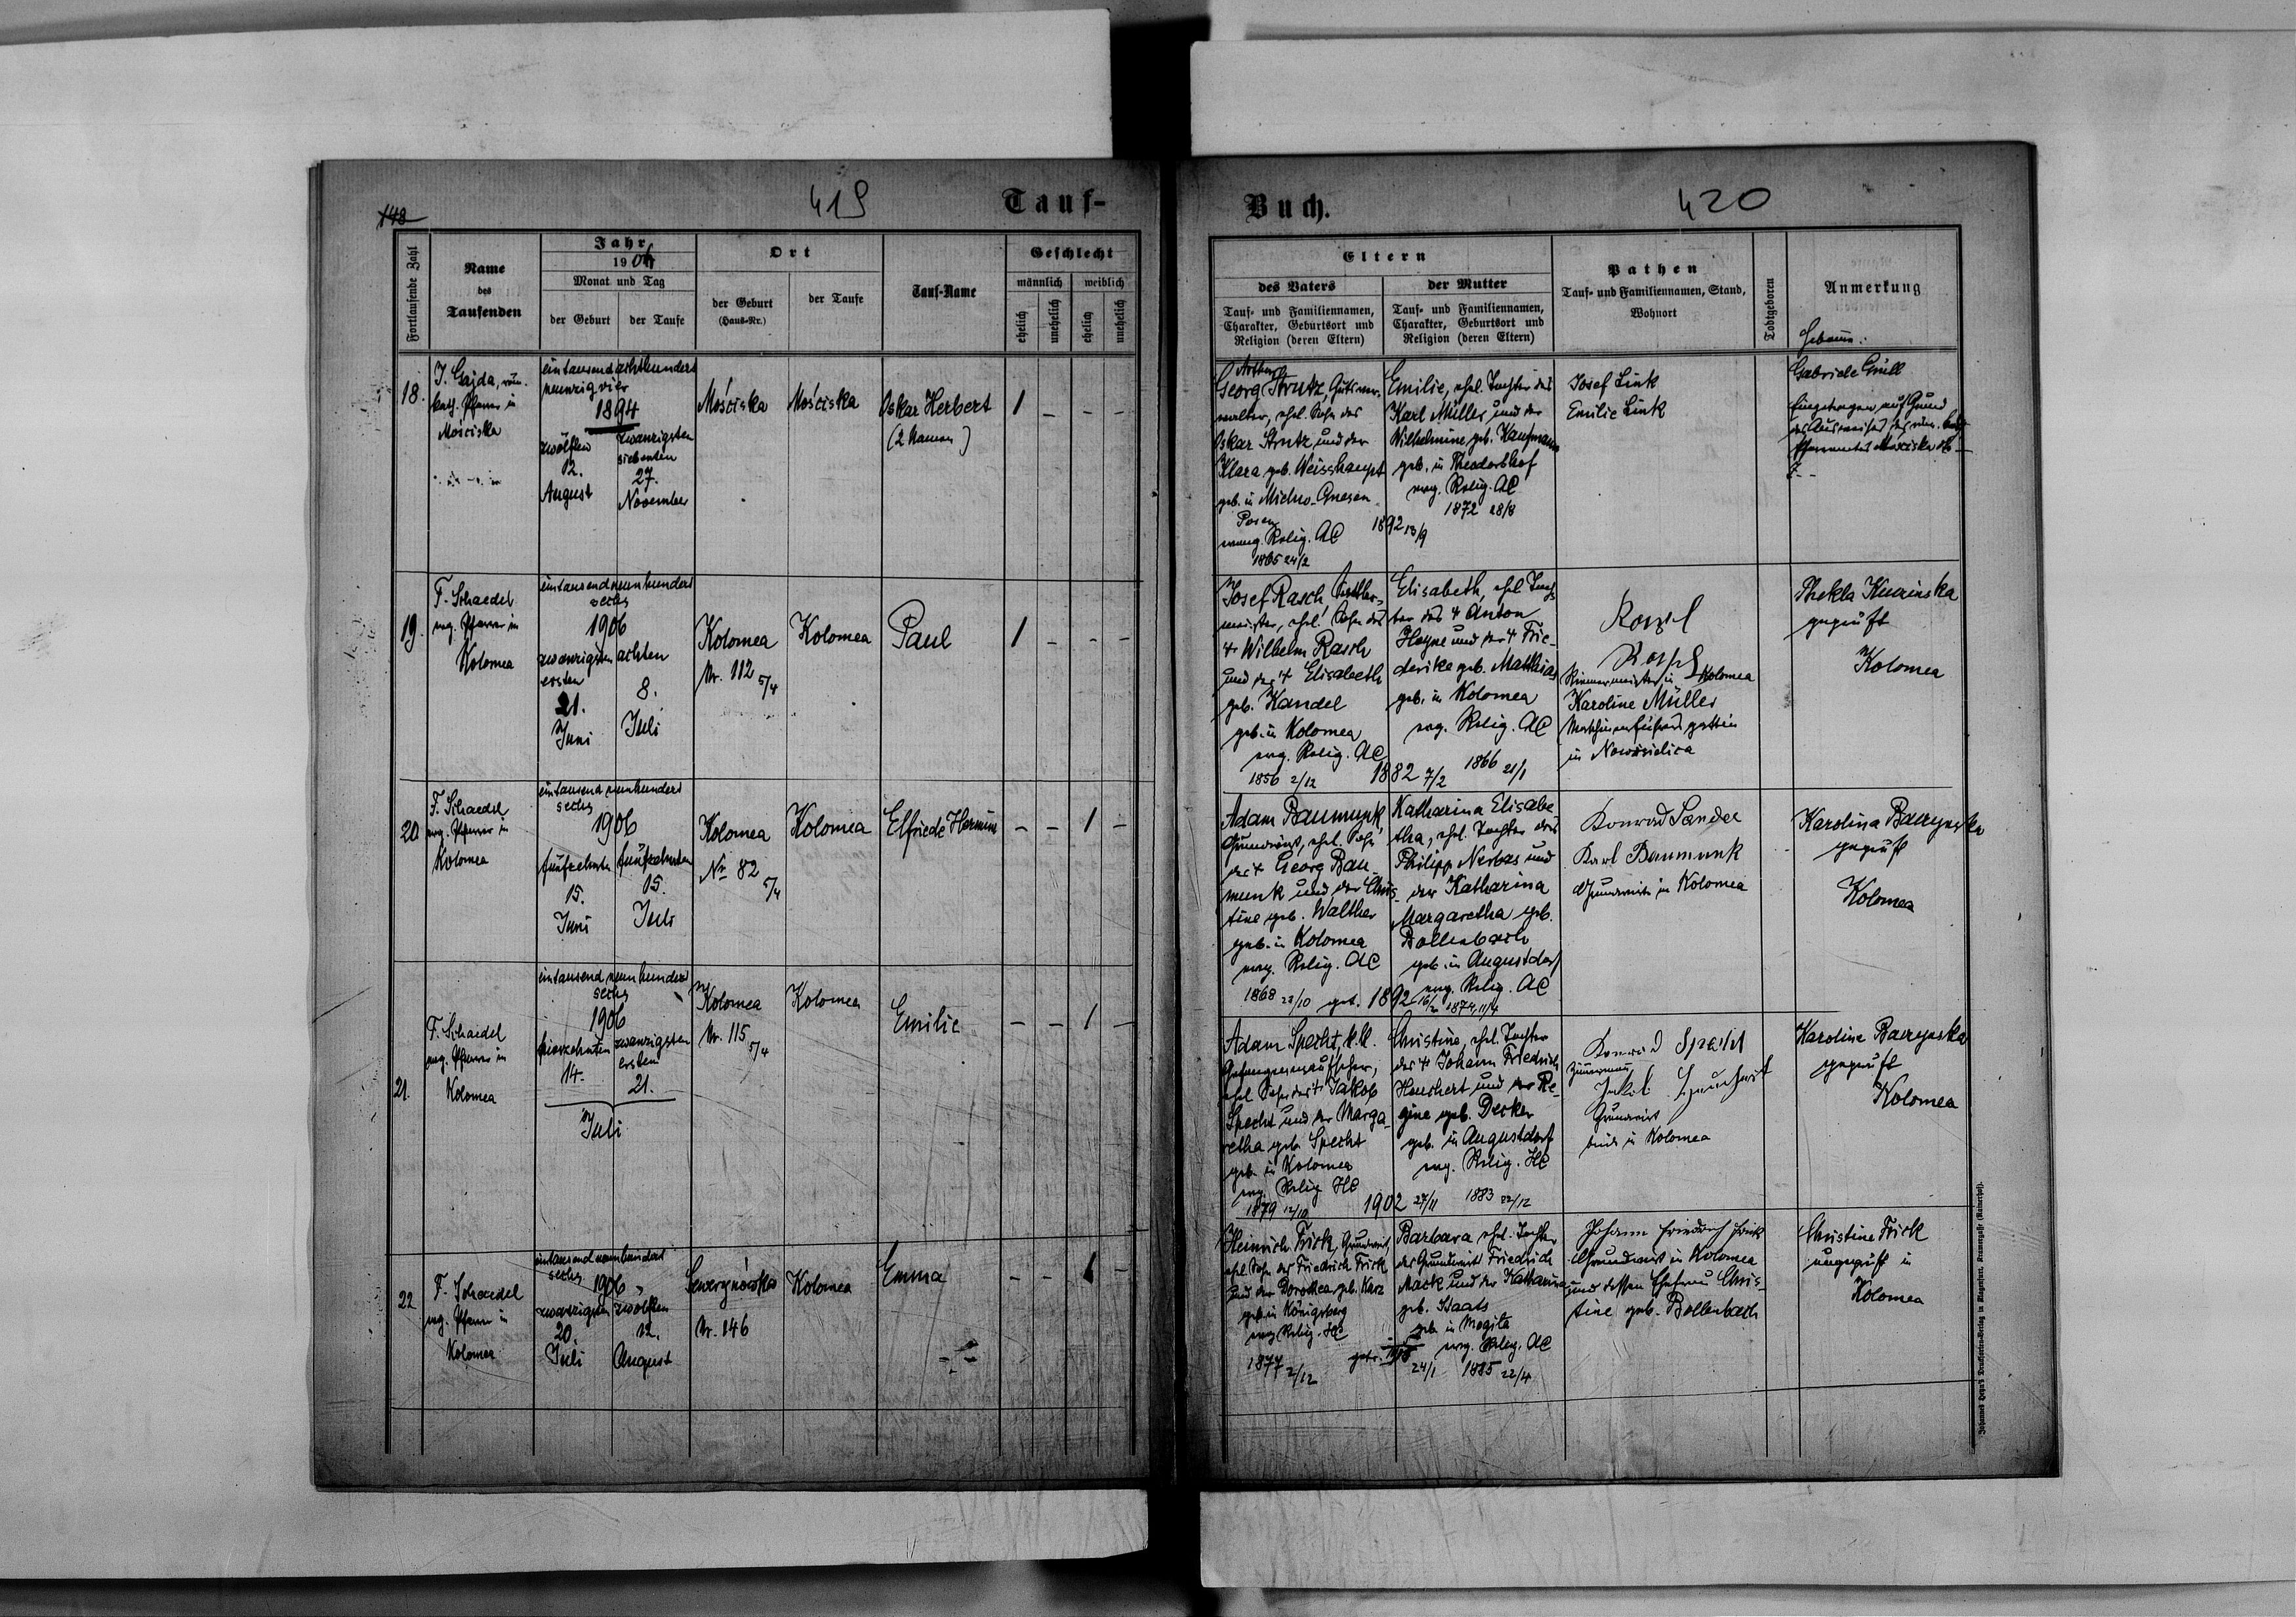 148
419
Tauf-
Fortlaufende Zahl
Name
des
Taufenden
Jahr
1906
Monat und Tag
der Geburt
der Taufe
Ort
der Geburt
(Haus-Nr.)
der Taufe
Tauf-Name
Geschlecht
männlich
weiblich
ehelich
unehelich
ehelich
unehelich
18.
J. Gajda, röm.
kath. Pfarrer in
Mościska
eintausend achthundert
neunzig vier
1894
zwölften
12.
August
zwanzigsten
siebenten
27.
November
Mościska
Mościska
Oskar Herbert
(2 Namen)
1 - - -
19.
F. Schaedel
evg. Pfarrer in
Kolomea
eintausend neunhundert
sechs
1906
zwanzigsten
ersten
21.
Juni
achten
8.
Juli
Kolomea
Nr. 112 5/4
Kolomea
Paul
1 - - -
20
F. Schaedel
evg. Pfarrer in
Kolomea
eintausend neunhundert
sechs
1906
fünfzehnten
15.
Juni
fünfzehnten
15.
Juli
Kolomea
Nr 82 5/4
Kolomea
Elfriede Hermine
- - 1 -
21.
F. Schaedel
evg. Pfarrer in
Kolomea
eintausend neunhundert
sechs
1906
vierzehnten
14.
zwanzigsten
ersten
21.
Juli
Kolomea
Nr. 115 5/4
Kolomea
Emilie
- - 1 -
22
F. Schaedel
evg. Pfarrer in
Kolomea
eintausend neunhundert
sechs
1906
zwanzigsten
20.
Juli
zwölften
12.
August
Sewerynówka
Nr. 146
Kolomea
Emma
- - 1 -
Buch.
420
Eltern
des Vaters
Tauf- und Familiennamen,
Charakter, Geburtsort und
Religion (deren Eltern)
der Mutter
Tauf- und Familiennamen,
Charakter, Geburtsort und
Religion (deren Eltern)
Pathen
Tauf- und Familiennamen, Stand,
Wohnort
Todtgeboren
Anmerkung
Hebamme:
Arthur
Georg Strutz, Gutsver-
walter, ehel. Sohn des
Oskar Strutz und der
Klara geb. Weisshaupt
geb. in Michno-Gnesen
Posen
evang. Relig. AC
1865 24/2
1892 13/9
Emilie, ehel. Tochter des
Karl Müller und der
Wilhelmine, geb. Kaufmann
geb. in Theodorshof
evg. Relig. AC
1872 28/8
Josef Link
Emilie Link
Gabriele Grüll
Eingetragen auf Grund
des Ausweises des röm. kath.
Pfarramtes Mościska
Josef Rasch, Sattler-
meister, ehel. Sohn des
+ Wilhelm Rasch
und der + Elisabeth
geb. Kandel
geb. in Kolomea
evg. Relig. AC
1856 2/12
1882 7/2
Elisabeth, ehel. Toch-
ter des + Anton
Heyne und der + Frie-
derike geb. Matthias
geb. in Kolomea
evg. Relig. AC
1866 21/1
Riemermeister in Kolomea
Karoline Müller
Maschinenführers gattin
in Nowosielica
Thekla
geprüft
Kolomea
Adam Baumunk,
Grundwirt, ehel. Sohn
des + Georg Bau-
munk und der Chris-
tine geb. Walther
geb. in Kolomea
evg. Relig. AC
1868 23/10 get. 1892 16/2
Katharina Elisabe-
tha, ehel. Tochter des
Philipp Nerbas und
der Katharina
Margaretha geb.
Bollenbach
geb. in Augustdorf
evg. Relig. AC
1874 11/4
Konrad Sander
Karl Baumunk
Grundwirte in Kolomea
Karolina
geprüft
Kolomea
Adam Specht, k.k.
Gefangenenaufseher,
ehel. Sohn des + Jakob
Specht und der Marga-
retha geb. Specht
geb. in Kolomea
evg. Relig. HC
1879 12/10
1902 27/11
Christine, ehel. Tochter
des + Johann Friedrich
Heuchert und der Re-
gine geb. Decker
geb. in Augustdorf
evg. Relig. HC
1883 22/12
Konrad Specht
Zimmermann
Jakob
Grundwirt
beide in Kolomea
Karoline
geprüft
Kolomea
Heinrich Frick, Grundwirt,
ehel. Sohn des Friedrich Frick
und der Dorothea geb. Karz
geb. in Königsberg
evg. Relig. HC
1877 2/12
24/1
Barbara ehel. Tochter
des Grundwirt Friedrich
Mack und der Katharina
geb. Staats
geb. in Mogila
evg. Relig. AC
1885 22/4
Johann Friedrich Frick
Grundwirt in Kolomea
und dessen Ehefrau Chris-
tine geb. Bollenbach
Christine Frick
ungeprüft in
Kolomea
Johannes Heyn's Drucksorten-Verlag in Klagenfurt, Kramergasse (Rainerhof).